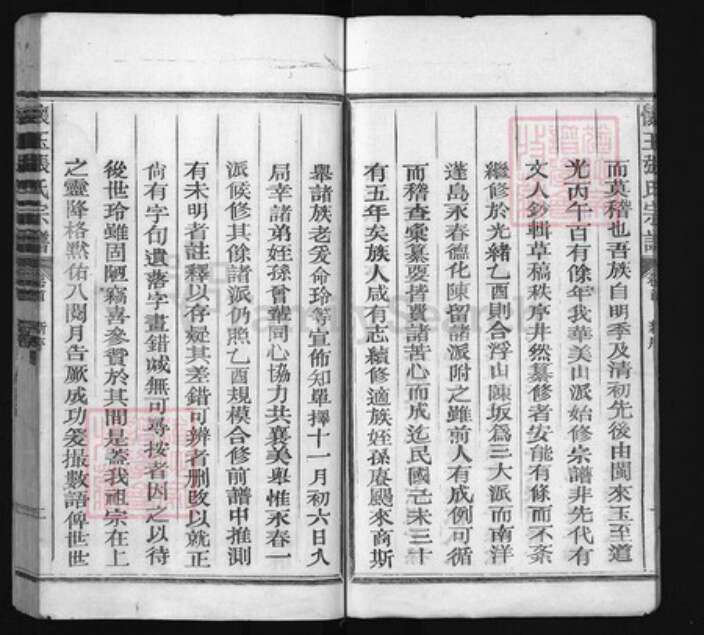 而莫稽也吾族自明季及清初先後由閩來玉至道
光丙午百有餘年我華美山派始修宗譜非先代有
文人鈔輯草稿秩序井然纂修者安能有條而不紊
繼修於光緒乙酉則合浮山陳坂爲三大派而南洋
蓬島永春德化陳留諸派附之雖前人有成例可循
而稽查彙纂要皆費諸苦心而成迄民國己未三十
有五年矣族人咸有志續修適族姪孫賡颺來商斯
舉諸族老爰命玲等宣佈知單擇十一月初六日入
局幸諸弟姪孫曾輩同心協力共襄美舉惟永春一
派候修其餘諸派仍照乙酉規模合修前譜中推測
有未明者註釋以存疑其差錯可辨者刪改以就正
尙有字句遺落字畫錯誠無可尋按者因之以待
後世玲雖固陋竊喜參贊於其間是蓋我祖宗在上
之靈降格黙佑八閱月告厥成功爰撮數語俾世世
懷玉張氏宗譜
卷首
新序
懷玉張氏宗譜
卷首
新序
FamilySearch